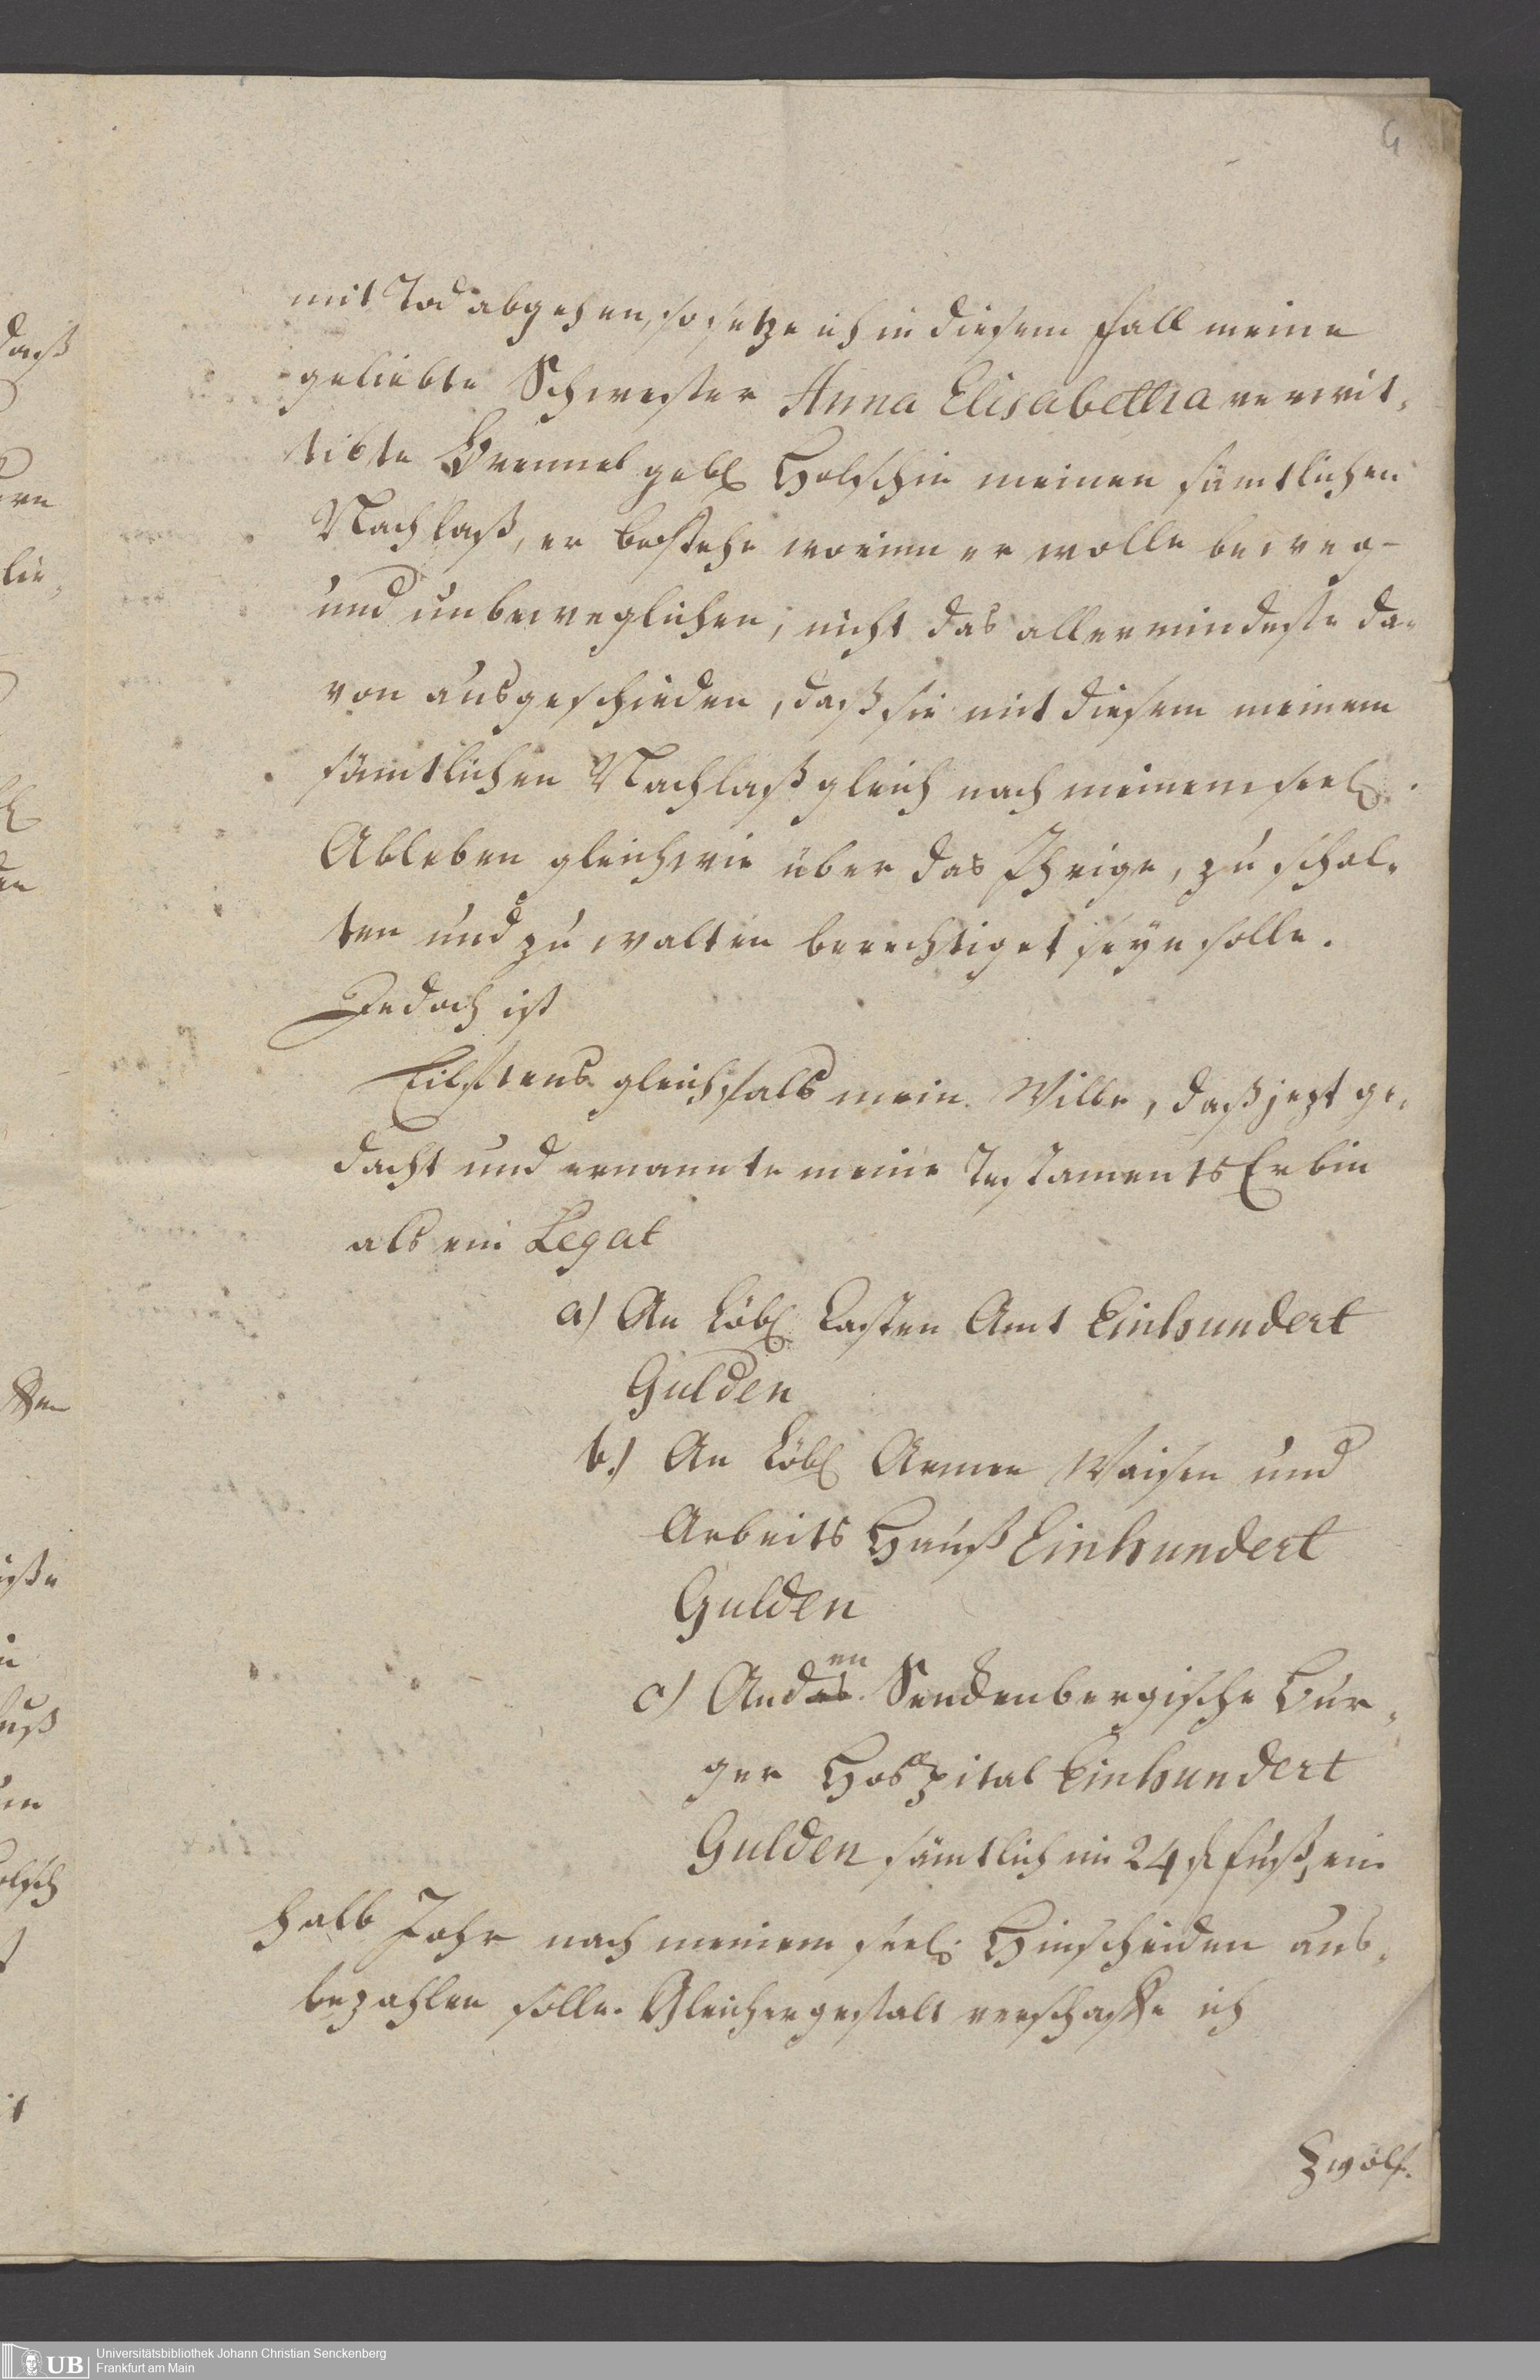 4
mit Tod abgehen, so setze ich in diesem Fall meine
geliebte Schwester Anna Elisabetha verwit-
tibte Gremmel geb. Holschin meinen sämtlichen
Nachlaß, er bestehe worinn er wolle beweg-
und unbeweglichen, nicht das allermindeste da-
von ausgeschieden, daß sie mit diesem meinem
sämtlichen Nachlaß gleich nach meinem seel.
Ableben gleichwie über das Ihrige, zu schal-
ten und zu walten berechtiget seyn solle.
Jedoch ist
Eilftens gleichfals mein Wille, daß jezt ge-
dacht und ernannte meine Testaments Erbin
als ein Legat
a) An Löbl. Casten Amt Einhundert
Gulden
b.) An Löbl. Armen Waisen und
Arbeits Hauß Einhundert
Gulden
en
c) An das Senckenbergische Bür-
ger Hospital Einhundert
Gulden sämtlich im 24 fl Fuß, ein
halb Jahr nach meinem seel. Hinscheiden aus-
bezahlen solle. Gleichergestalt verschaffe ich
Zwölf-
daß
lie,
uß
olsch
UB
Universitätsbibliothek Johann Christian Senckenberg
Frankfurt am Main